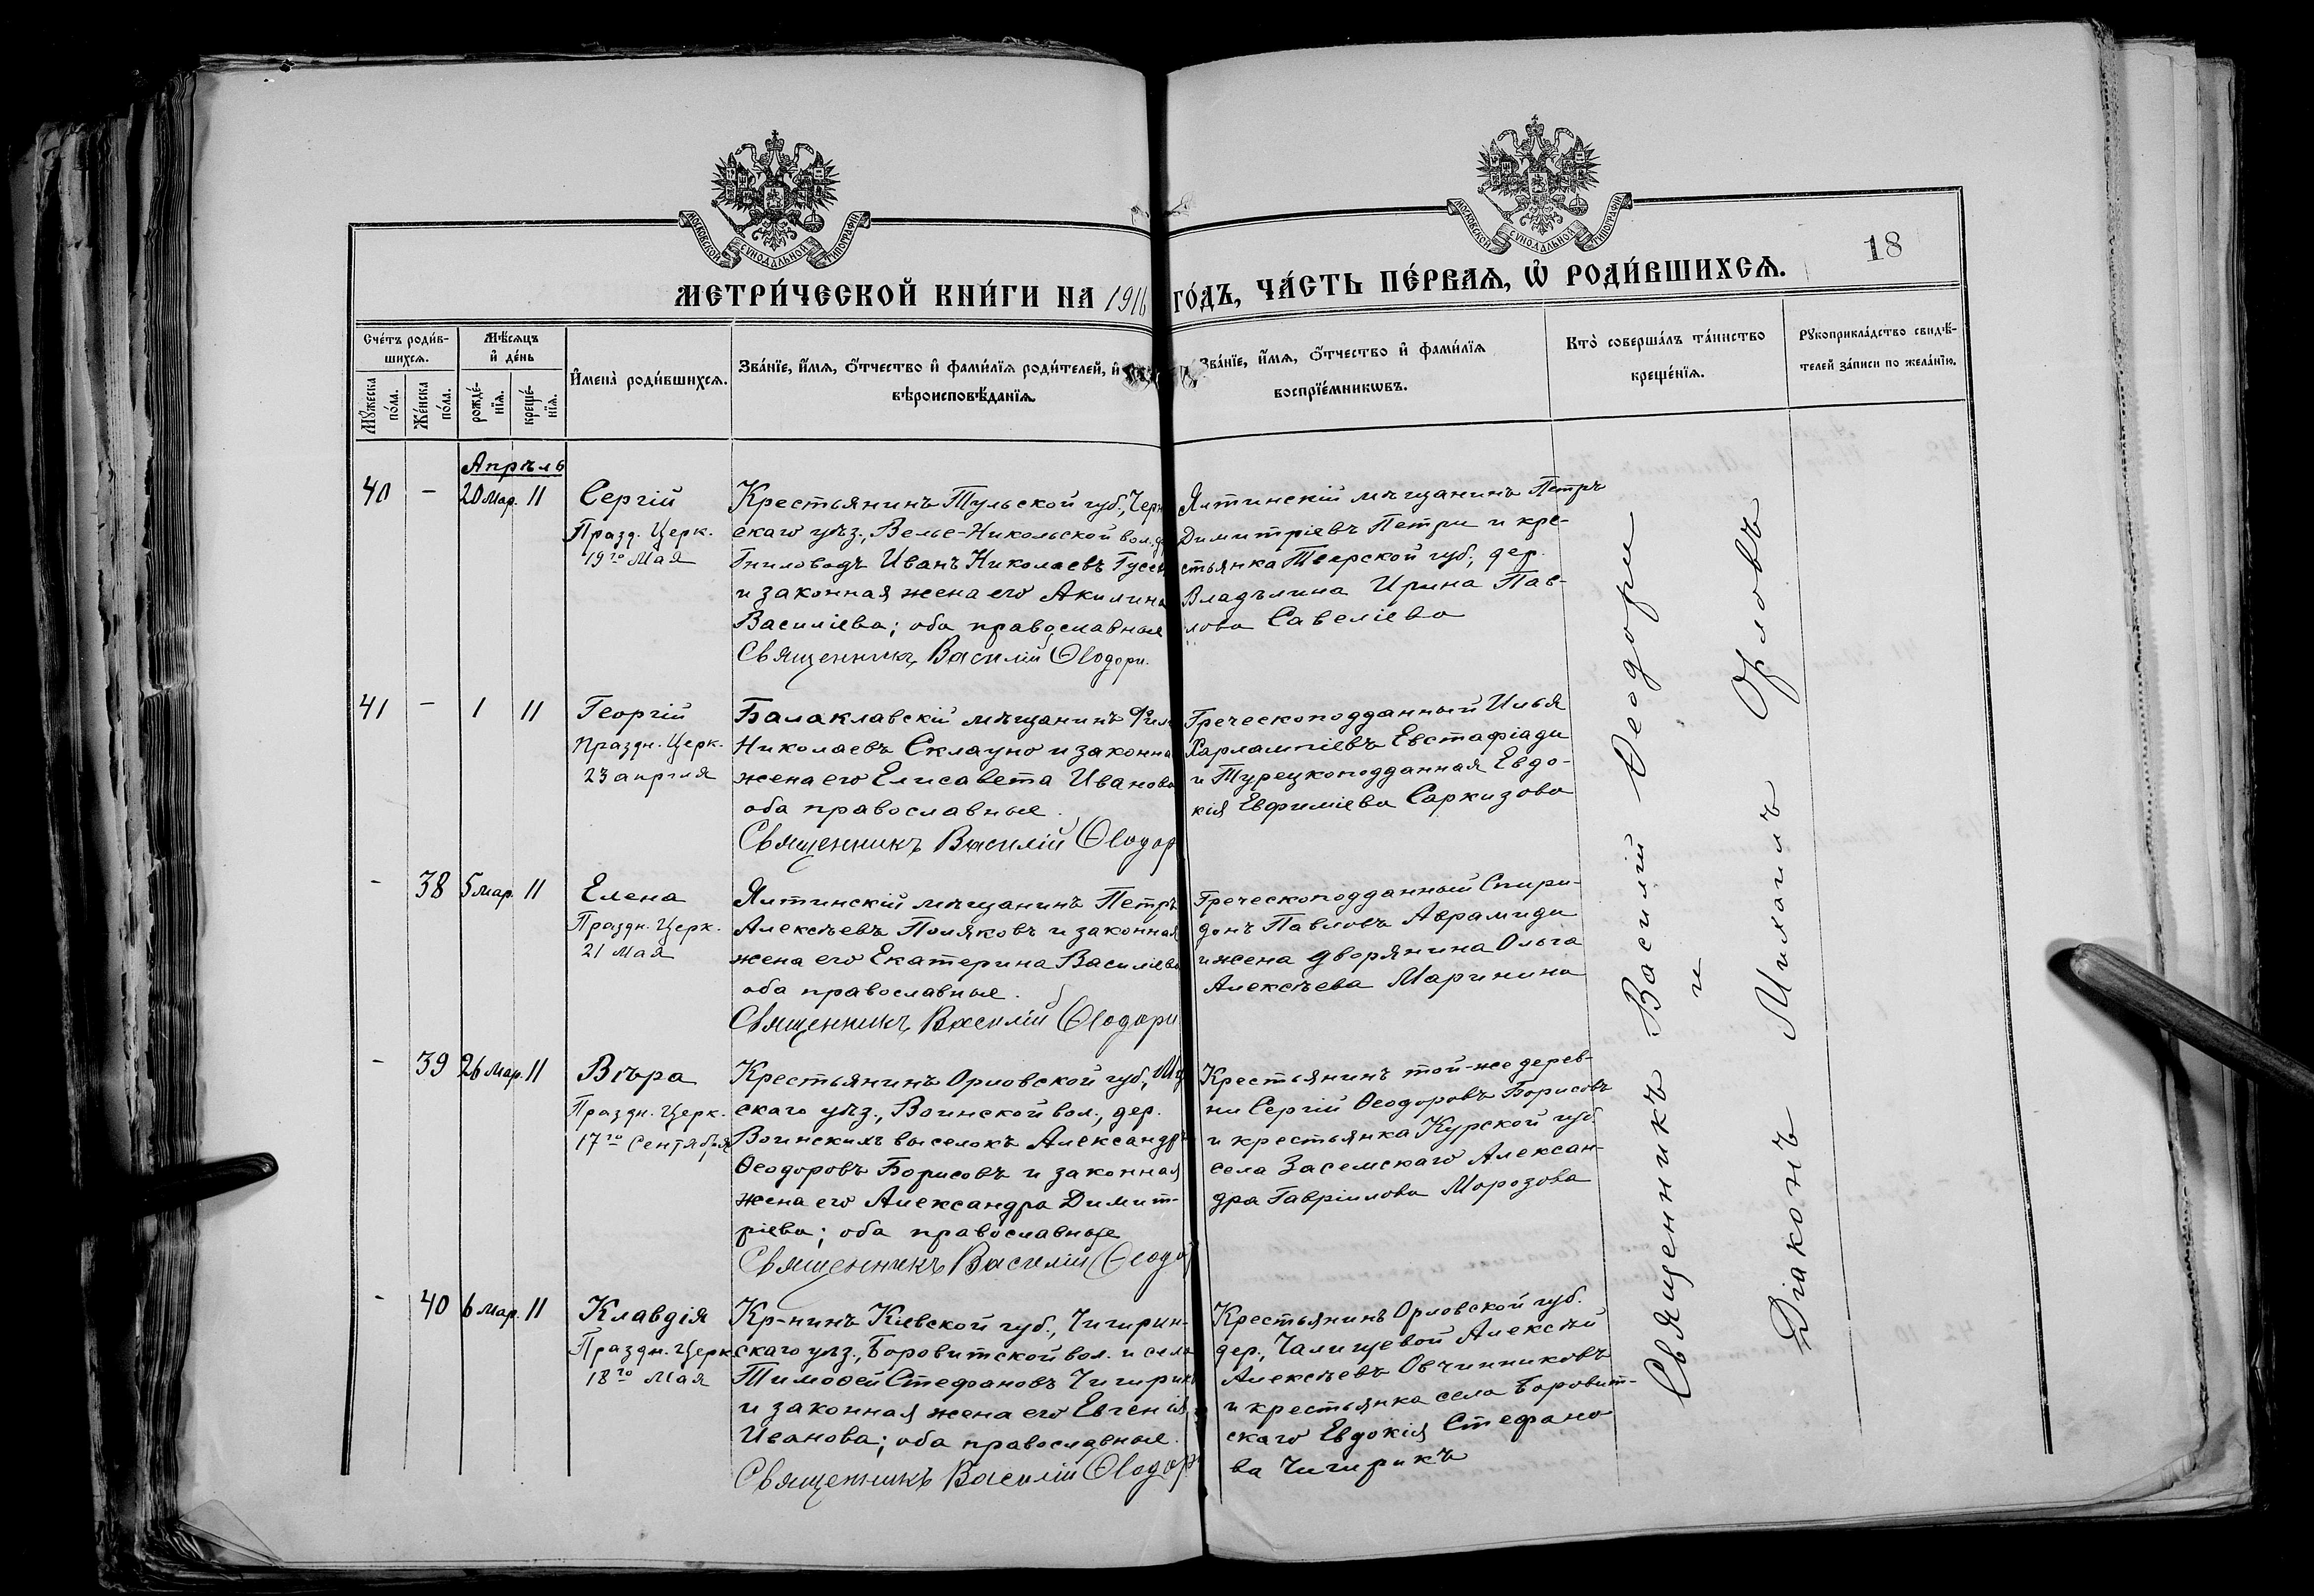 МОСКОВСКОЙ СѴНОДАЛЬНОЙ ТИПОГРАФІИ
МОСКОВСКОЙ СѴНОДАЛЬНОЙ ТИПОГРАФІИ
18
МЕТРИ́ЧЕСКОЙ КНИ́ГИ НА 1916 ГО́ДЪ, ЧА́СТЬ ПЕ́РВАЯ, Ѡ҆ РОДИ́ВШИХСЯ.
Сче́тъ роди́в-
шихся.
Мꙋ́жеска
по́ла.
Же́нска
по́ла.
Мѣ́сяцъ
и҆ де́нь
рожде́-
нїя.
креще́-
нїя.
И҆мена̀ роди́вшихся.
Зва́нїе, и҆́мя, ѻ҆́тчество и҆ фами́лїя роди́телей, и҆
вѣроисповѣ́данїя.
Зва́нїе, и҆́мя, ѻ҆́тчество и҆ фами́лїя
воспрїе́мникѡвъ.
Кто̀ соверша́лъ та́инство
креще́нїя.
Рꙋкоприкла́дство свидѣ́-
телей за́писи по жела́нїю.
Апрѣль
40 - 20 Мар. 11
Сергій
Празд. Церк.
19го Мая
Крестьянинъ Тульской губ., Черн
скаго уѣз., Велье-Никольской вол.
Гниловодъ Иванъ Николаевъ Гусев
и законная жена его Акилина
Василіева; оба православные
Священникъ Василій Ѳеодори.
Ялтинскій мѣщанинъ Петръ
Димитріевъ Петри и кре-
стьянка Тверской губ., дер.
Владѣлина Ирина Пав-
лова Савеліева
41 - 1 11
Георгій
Праздн. Церк.
23 апрѣля
Балаклавскій мѣщанинъ Фил
Николаевъ Склауно и законна
жена его Елисавета Иванова
оба православные.
Священникъ Василій Ѳеодор
Греческоподданный Илья
Харлампіевъ Евстафіади
и Турецкоподданная Евдо-
кія Евфиміева Саркизова
- 38 5 мар. 11
Елена
Праздн. Церк.
21 Мая
Ялтинскій мѣщанинъ Петръ
Алексѣевъ Поляковъ и законная
жена его Екатерина Василіева
оба православные.
Священникъ Василій Ѳеодори
Греческоподданный Спири-
донъ Павловъ Аврамиди
и жена дворянина Ольга
Алексѣева Маринина
- 39 26 Мар. 11
Вѣра
Праздн. Церк.
17го Сентября
Крестьянинъ Орловской губ., Мц
скаго уѣз., Воинской вол., дер.
Воинскихъ выселокъ Александръ
Ѳеодоровъ Борисовъ и законная
жена его Александра Димит-
ріева; оба православные
Священникъ Василій Ѳеодо
Крестьянинъ той-же дерев-
ни Сергій Ѳеодоровъ Борисовъ
и крестьянка Курской губ.
села Засемскаго Алексан-
дра Гавріилова Морозова
- 40 6 мар. 11
Клавдія
Праздн. Церк.
18го Мая
Кр-нинъ Кіевской губ., Чигирин-
скаго уѣз., Боровитской вол. и села
Тимоѳей Стефановъ Чигирик
и законная жена его Евгенія
Иванова; оба православные.
Священникъ Василій Ѳеодор
Крестьянинъ Орловской губ.
дер., Чалищевой Алексѣй
Алексѣевъ Овчинниковъ
и крестьянка села Боровит-
скаго Евдокія Стефано
ва Чигирикъ
Священникъ Василій Ѳеодори
и
Діаконъ Михаилъ Орловъ